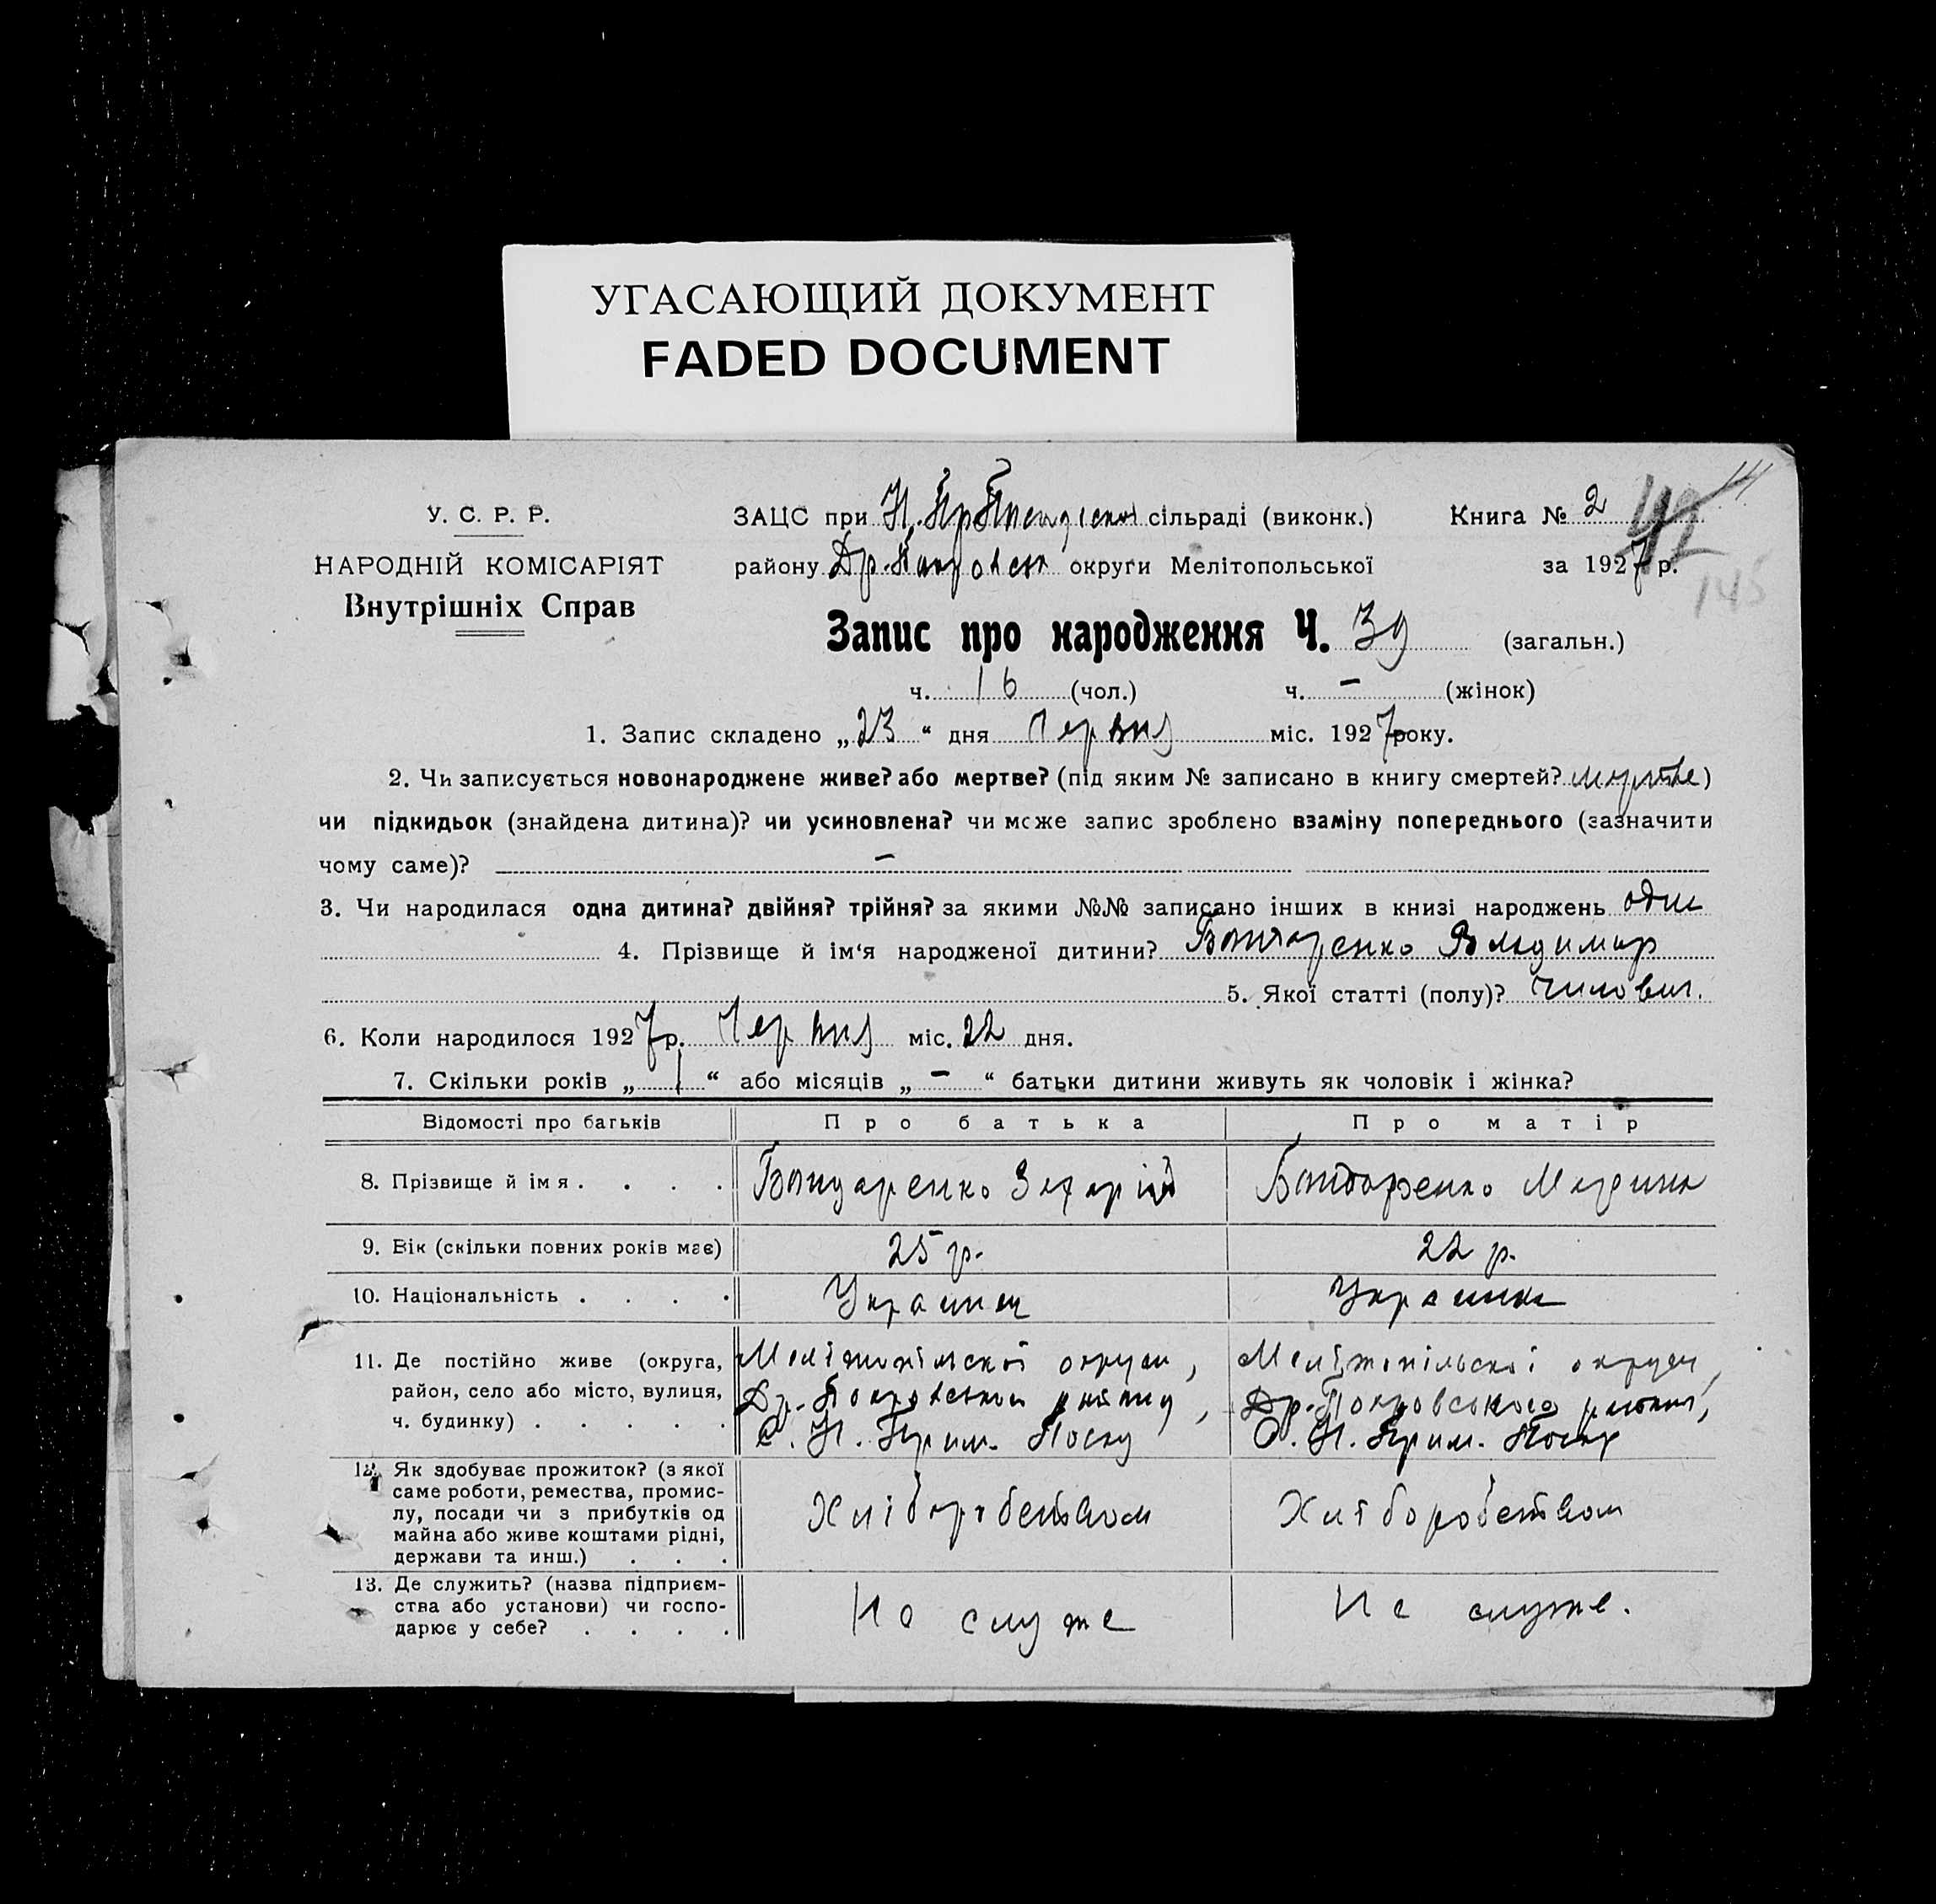 УГАСАЮЩИЙ ДОКУМЕНТ
FADED DOCUMENT
У. С. Р. Р.
НАРОДНІЙ КОМІСАРІЯТ
Внутрішніх Справ
ЗАЦС при сільраді (виконк.) Книга № 2
району Др. Покровськ округи Мелітопольської за 1927 р.
145
Запис про народження Ч. 39 (загальн.)
ч. 16 (чол.) ч. – (жінок)
1. Запис складено „23“ дня Червня міс. 1927 року.
2. Чи записується новонароджене живе? або мертве? (під яким № записано в книгу смертей?)
чи підкидьок (знайдена дитина)? чи усиновлена? чи може запис зроблено взаміну попереднього (зазначити
чому саме)? –
3. Чи народилася одна дитина? двійня? трійня? за якими №№ записано інших в книзі народжень одне
4. Прізвище й ім‘я народженої дитини? Бондаренко Владимир
5. Якої статті (полу)? чилович.
6. Коли народилося 1927 р. Червня міс. 22 дня.
7. Скільки років „1“ або місяців „–“ батьки дитини живуть як чоловік і жінка?
Відомості про батьків Про батька Про матір
8. Прізвище й імя . . . . Бондаренко Захарій Бондаренко Марина
9. Вік (скільки повних років має) 25 р. 22 р.
10. Національність . . . . Украинец Украинка
11. Де постійно живе (округа, район, село або місто, вулиця, ч. будинку) . . . . .
Мелітопільскої округи, Мелітопільскої округи,
Др.-Покровського району, Др.-Покровського району,
С. Н. Прим. Посад С. Н. Прим. Посад
12. Як здобуває прожиток? (з якої
саме роботи, ремества, промис-
лу, посади чи з прибутків од
майна або живе коштами рідні,
держави та инш.) . . .
Хліборобством Хліборобством
13. Де служить? (назва підприєм-
ства або установи) чи госпо-
дарює у себе? . . . .
Не служе Не служе.